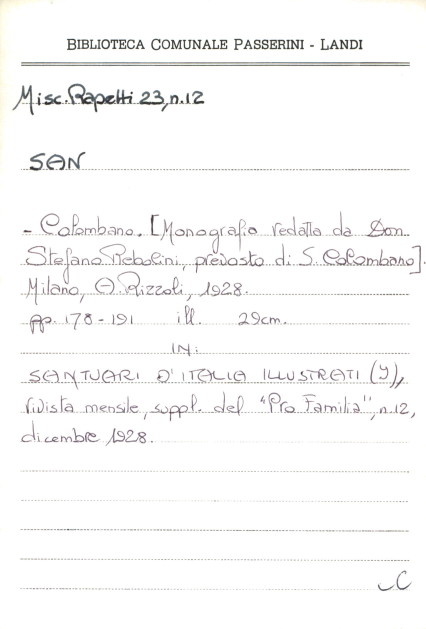 BIBLIOTECA COMUNALE PASSERINI - LANDI
Misc. Rapetti 23, n.12
SAN
- Colombano. [Monografia redatta da Don
Stefano Rebolini, prevosto di S. Colombano].
Milano, A. Rizzoli, 1928.
pp. 178-191 ill. 29cm.
IN:
SANTUARI D'ITALIA ILLUSTRATI (I),
rivista mensile, suppl. del "Pro Familia", n.12,
dicembre 1928.